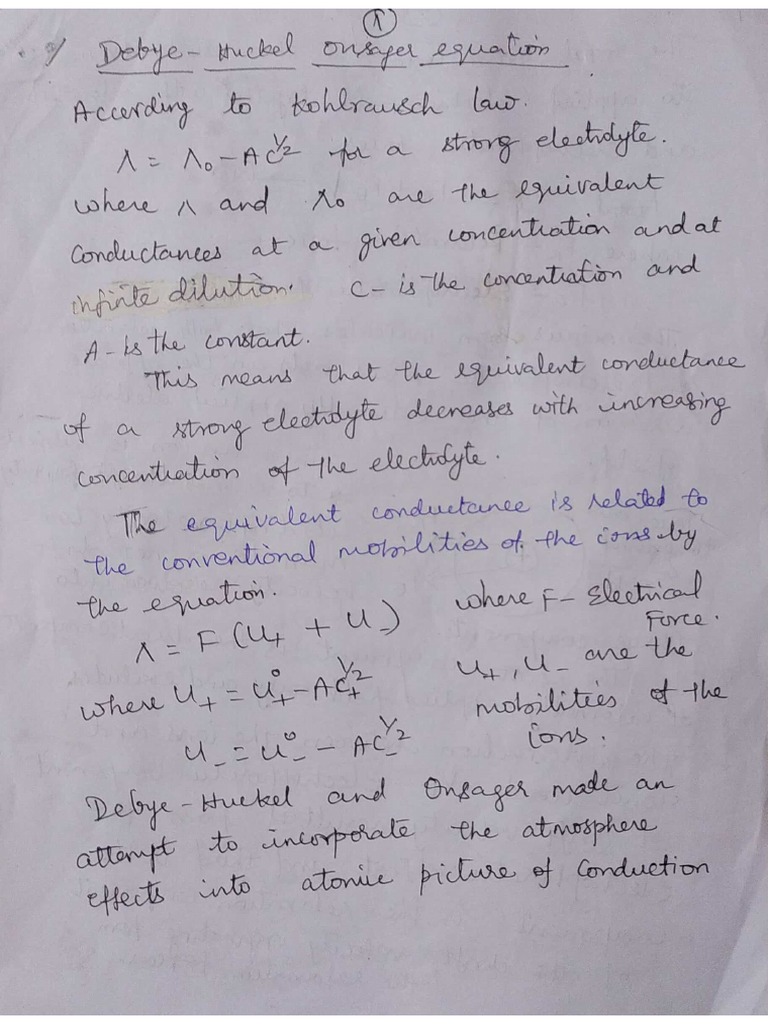 1
Debye - Huckel Onsager equation
According to Kohlrausch law.
Λ = Λ₀ - AC^1/2 for a strong electrolyte.
where Λ and Λ₀ are the equivalent
conductances at a given concentration and at
infinite dilution. C - is the concentration and
A - is the constant.
This means that the equivalent conductance
of a strong electrolyte decreases with increasing
concentration of the electrolyte.
The equivalent conductance is related to
the conventional mobilities of the ions by
the equation.
Λ = F (U₊ + U₋)
where U₊ = U₊⁰ - AC₊^1/2
U₋ = U₋⁰ - AC₋^1/2
where F - Electrical
Force.
U₊, U₋ are the
mobilities of the
ions.
Debye - Huckel and Onsager made an
attempt to incorporate the atmosphere
effects into atomic picture of conduction